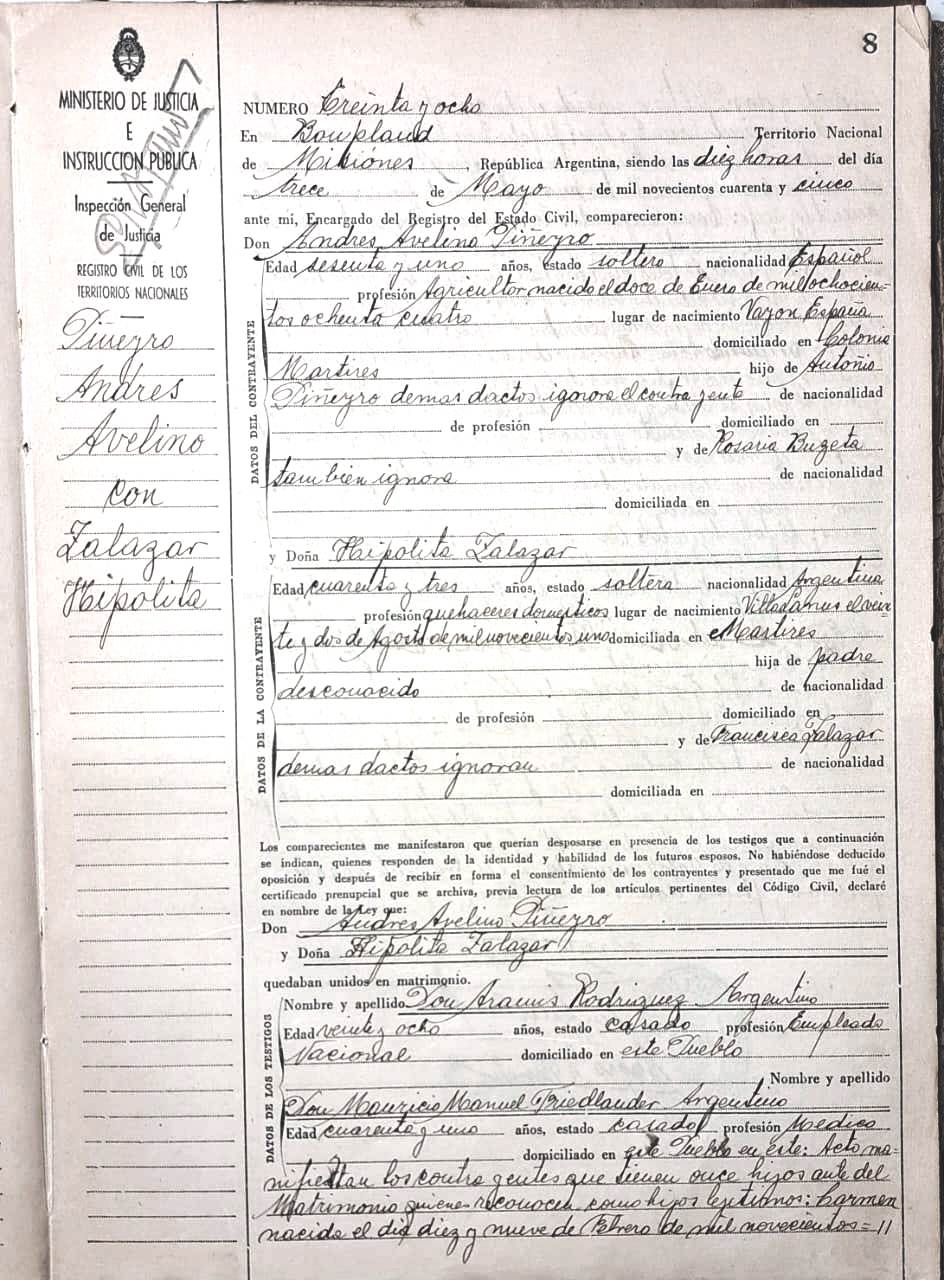 8
MINISTERIO DE JUSTICIA
E
INSTRUCCION PUBLICA
Inspección General
de Justicia
REGISTRO CIVIL DE LOS
TERRITORIOS NACIONALES
Piñeyro
Andres
Avelino
con
Zalazar
Hipolita
NUMERO Treinta y ocho
En Bompland Territorio Nacional
de Misiones, República Argentina, siendo las diez horas del día
trece de Mayo de mil novecientos cuarenta y cinco
ante mi, Encargado del Registro del Estado Civil, comparecieron:
Don Andres Avelino Piñeyro
DATOS DEL CONTRAYENTE
Edad sesenta y uno años, estado soltero nacionalidad Español
profesión Agricultor nacido el doce de Enero de mil ochocien=
tos ochenta cuatro lugar de nacimiento Vazon España
domiciliado en Colonia
Martires hijo de Antoñio
Piñeyro demas dactos ignora el contragente de nacionalidad
de profesión domiciliado en
y de Rosaria Buzeta
tambien ignora de nacionalidad
domiciliada en
y Doña Hipolita Zalazar
DATOS DE LA CONTRAYENTE
Edad cuarenta y tres años, estado soltera nacionalidad Argentina
profesión quehaceres domesticos lugar de nacimiento Villa Lanus el vein
te y dos de Agosto de mil novecientos uno domiciliada en Martires
hija de padre
desconocido de nacionalidad
de profesión domiciliado en
y de Francisca Zalazar
demas dactos ignoran de nacionalidad
domiciliada en
Los comparecientes me manifestaron que querían desposarse en presencia de los testigos que a continuación
se indican, quienes responden de la identidad y habilidad de los futuros esposos. No habiéndose deducido
oposición y después de recibir en forma el consentimiento de los contrayentes y presentado que me fué el
certificado prenupcial que se archiva, previa lectura de los artículos pertinentes del Código Civil, declaré
en nombre de la Ley que:
Don Andres Avelino Piñeyro
y Doña Hipolita Zalazar
quedaban unidos en matrimonio.
DATOS DE LOS TESTIGOS
Nombre y apellido Don Aramis Rodriguez Argentino
Edad veinte y ocho años, estado casado profesión Empleado
Nacional domiciliado en este Pueblo
Nombre y apellido
Don Mauricio Manuel Friedlander Argentino
Edad cuarenta y uno años, estado casado profesión Medico
domiciliado en este Pueblo en este: Acto ma=
nifiestan los contragentes que tienen once hijos ante del
Matrimonio quienes reconocen como hijos lejitimos: Carmen
nacida el dia diez y nueve de Febrero de mil novecientos = 11